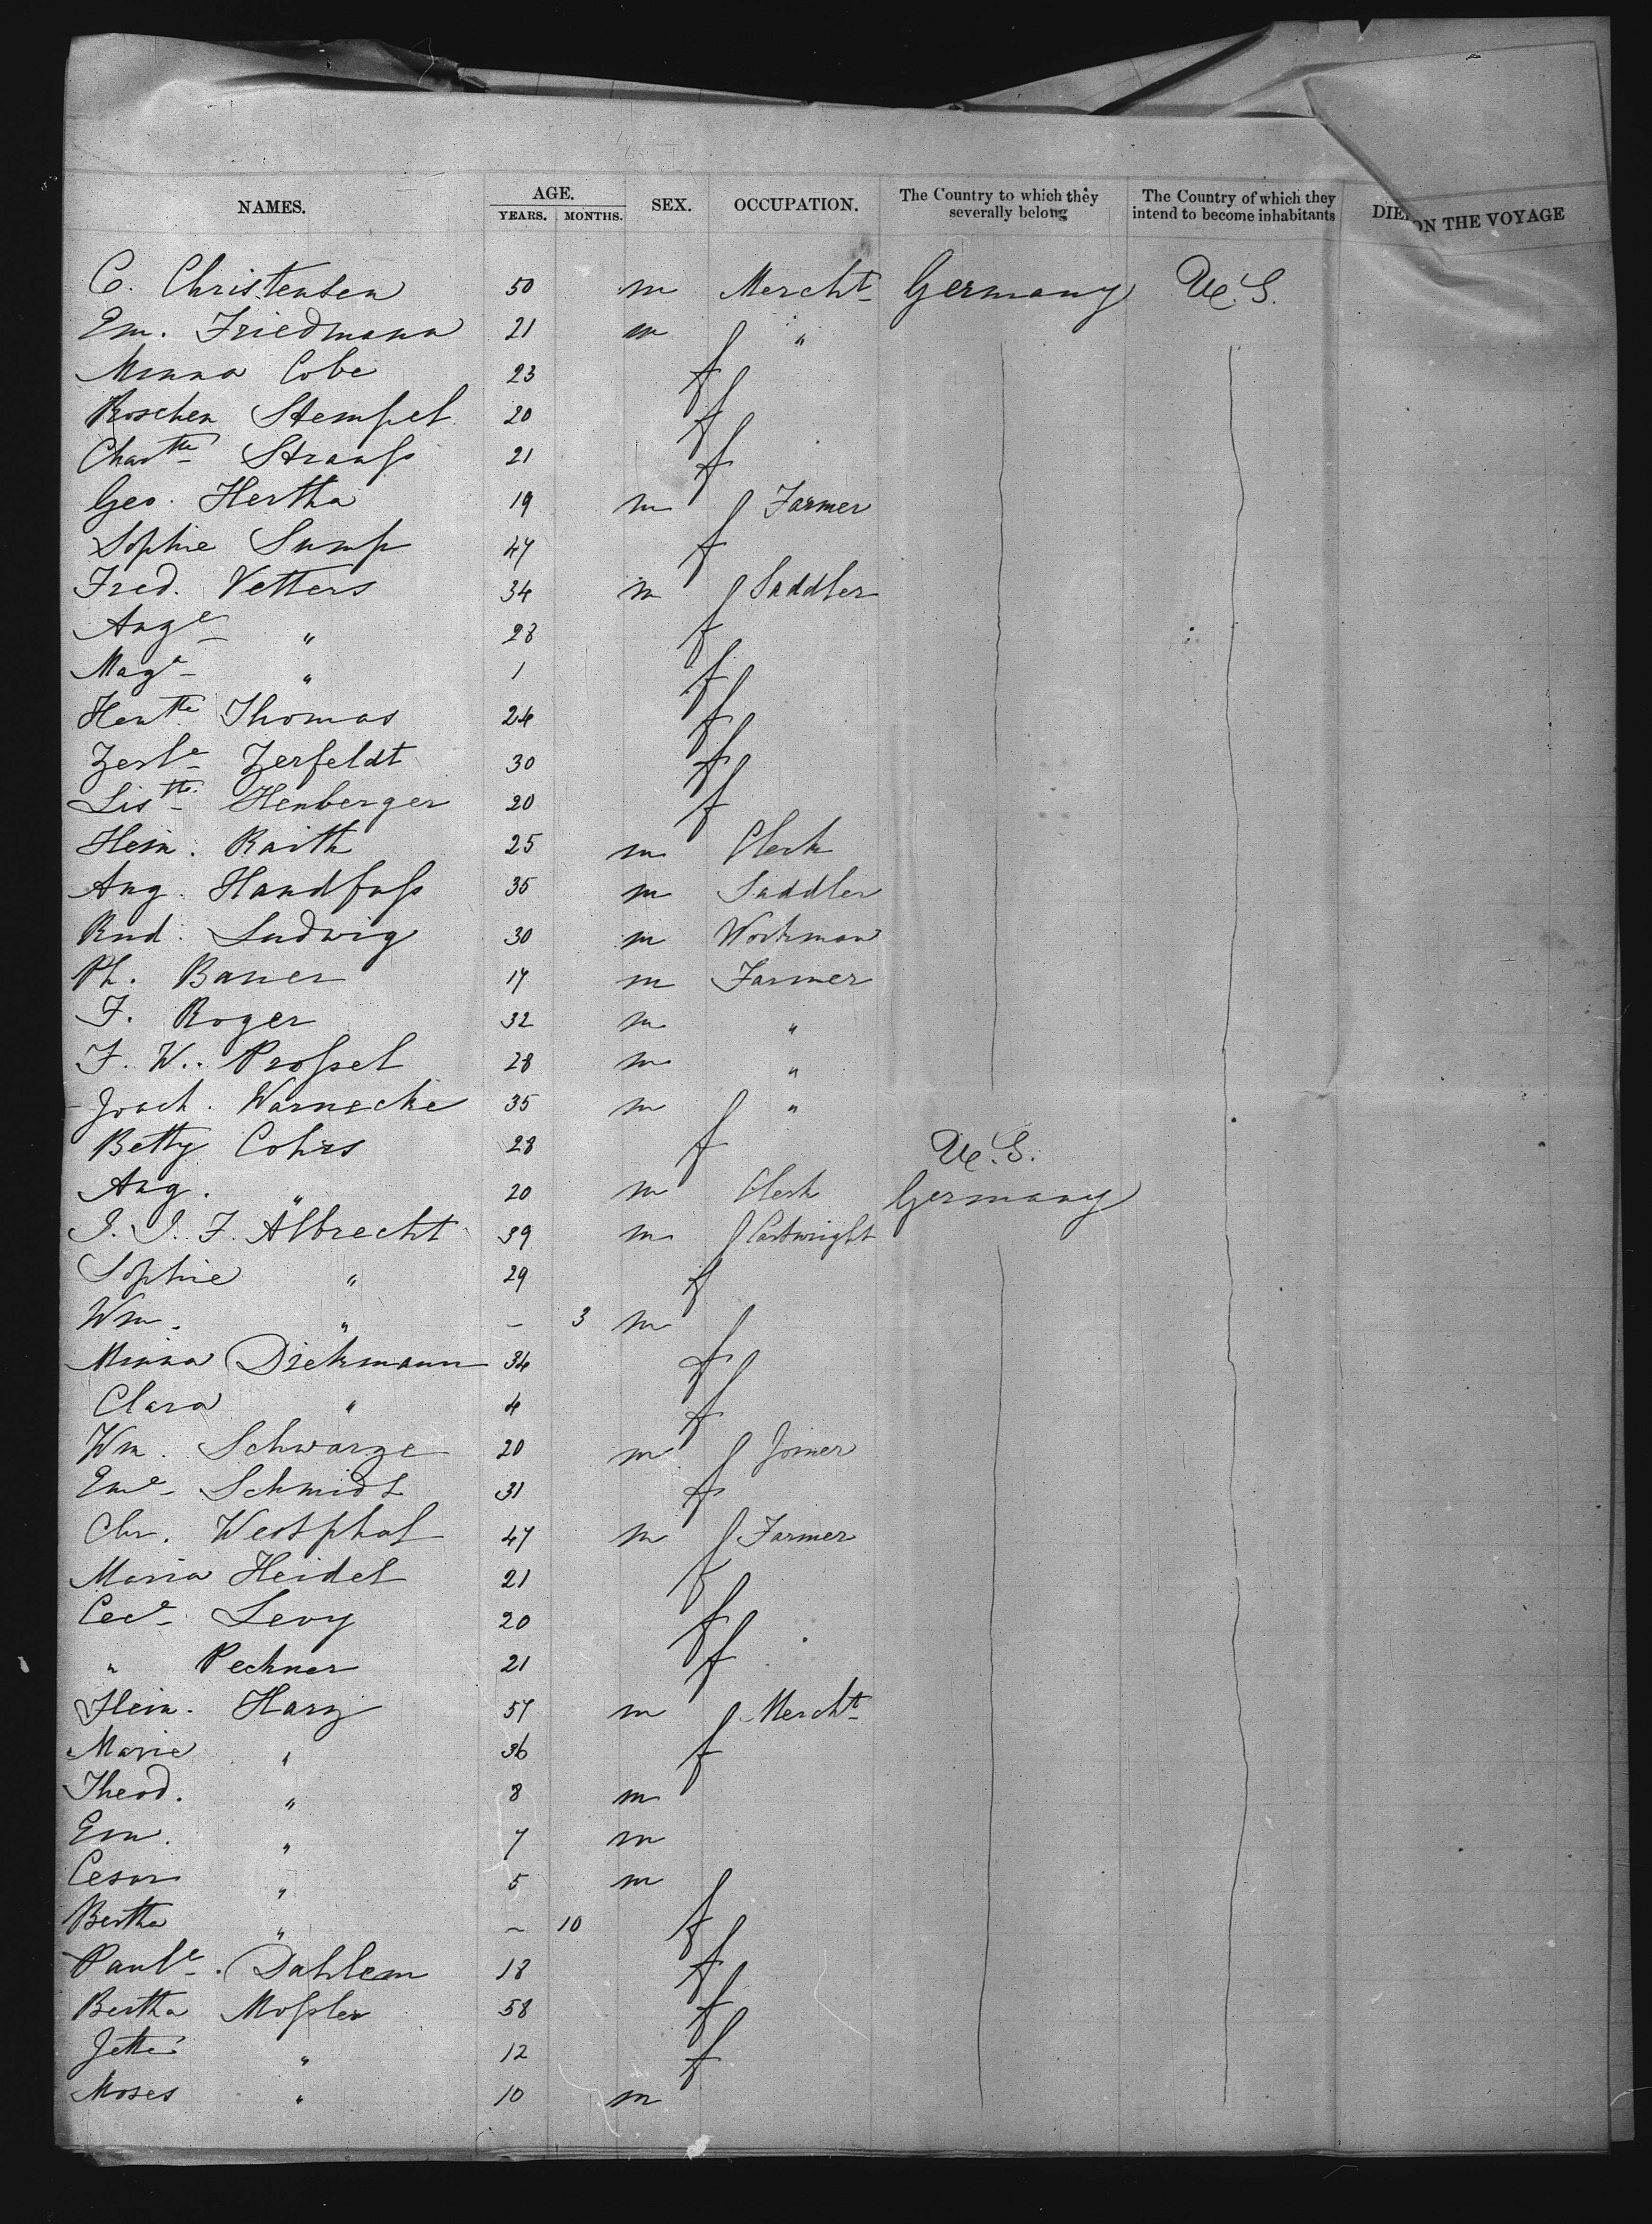 NAMES. AGE. YEARS. MONTHS. SEX. OCCUPATION. The Country to which they severally belong The Country of which they intend to become inhabitants DIED ON THE VOYAGE
C. Christensen 50 m Mercht Germany U.S.
Em. Friedmann 21 m "
Minna Cobe 23 f
Roschen Stempel 20 f
Chartte Strauss 21 f
Geo. Hertha 19 m Farmer
Sophie Sump 47 f
Fred. Vetters 34 m Saddler
Auge " 28 f
Mage " 1 f
Hentte Thomas 24 f
Zerfeldt 30 f
Listte Henberger 20 f
Hein. Raith 25 m Clerk
Aug. Handfuss 35 m Saddler
Rud. Ludwig 30 m Workman
Ph. Bauer 17 m Farmer
F. Roger 32 m "
F. W. Prossel 28 m "
Joach. Warnecke 35 m "
Betty Cohrs 28 f U.S.
Aug. " 20 m Clerk Germany
J. J. F. Albrecht 39 m Cartwright
Sophie " 29 f
Wm. " – 3 m
Minna Diekmann 34 f
Clara " 4 f
Wm. Schwarze 20 m Joiner
Eme Schmidt 31 f
Chr. Westphal 47 m Farmer
Maria Heidel 21 f
Cece Levy 20 f
" Pechner 21 f
Hein. Harz 57 m Mercht
Marie " 36 f
Theod. " 8 m
Em. " 7 m
Cesar " 5 m
Bertha " – 10 f
Paule. Dahlem 18 f
Bertha Mossler 58 f
Jette " 12 f
Moses " 10 m